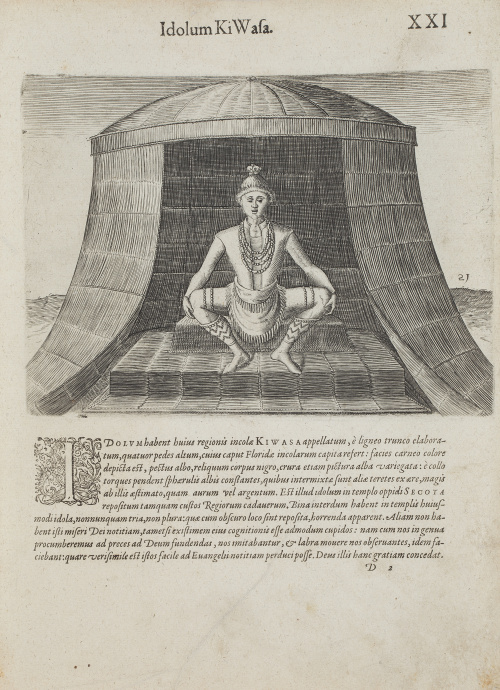 Idolum KiWasa.
XXI
21
IDOLVM habent huius regionis incolæ KIWASA appellatum, è ligneo trunco elabora-
tum, quatuor pedes altum, cuius caput Floridæ incolarum capita refert: facies carneo colore
depicta est, pectus albo, reliquum corpus nigro, crura etiam pictura alba variegata: è collo
torques pendent sphærulis albis constantes, quibus intermixtæ sunt aliæ teretes ex ære, magis
ab illis æstimato, quam aurum vel argentum. Est illud idolum in templo oppidi SECOTA
repositum tamquam custos Regiorum cadauerum, Bina interdum habent in templis huius-
modi idola, nonnunquam tria, non plura: quæ cum obscuro loco sint reposita, horrenda apparent. Aliam non ha-
bent isti miseri Dei notitiam, tametsi existimem eius cognitionis esse admodum cupidos: nam cum nos in genua
procumberemus ad preces ad Deum fundendas, nos imitabantur, & labra mouere nos obseruantes, idem fa-
ciebant: quare verisimile est istos facile ad Euangelii notitiam perduci posse. Deus illis hanc gratiam concedat.
D 2